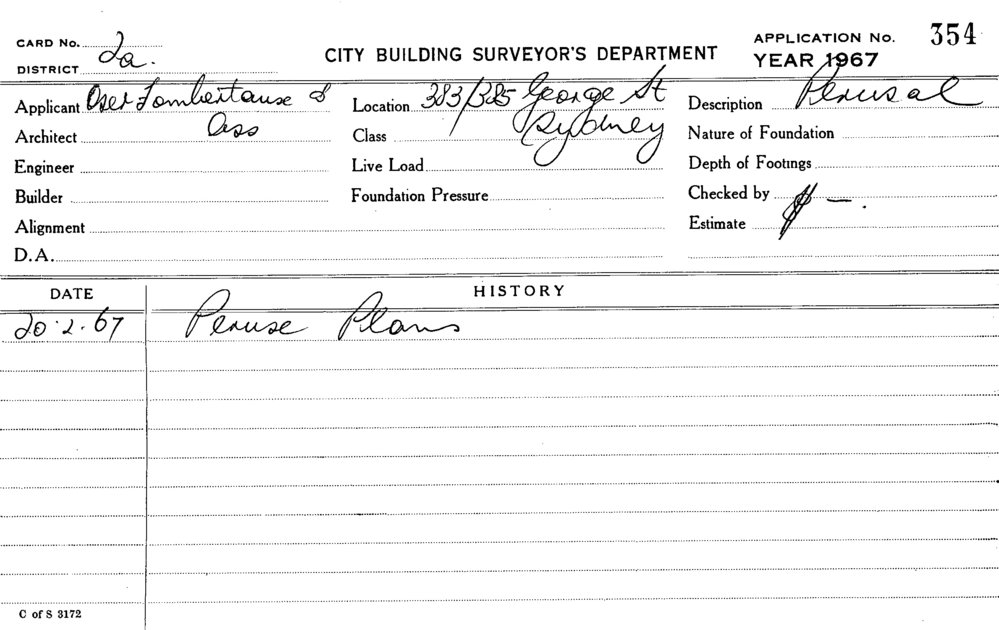 CARD No. 2a.
DISTRICT
CITY BUILDING SURVEYOR'S DEPARTMENT
APPLICATION No. 354
YEAR 1967
Applicant Oser Fombertause &
Ass
Location 383/385 George St
Sydney
Description Perusal
Architect
Class
Nature of Foundation
Engineer
Live Load
Depth of Footings
Builder
Foundation Pressure
Checked by
Alignment
Estimate
D.A.
DATE HISTORY
20.2.67 Peruse Plans
C of S 3172